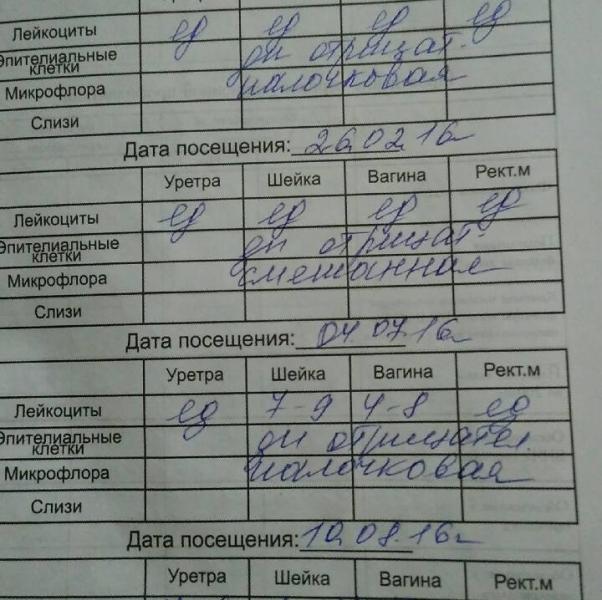 Лейкоциты ед ед ед ед
Эпителиальные клетки гн отрицат.
Микрофлора палочковая
Слизи
Дата посещения: 26.02.16г
Уретра Шейка Вагина Рект.м
Лейкоциты ед ед ед ед
Эпителиальные клетки гн отрицат.
Микрофлора смешанная
Слизи
Дата посещения: 04.07.16г
Уретра Шейка Вагина Рект.м
Лейкоциты ед 7-9 4-8 ед
Эпителиальные клетки гн отрицател.
Микрофлора палочковая
Слизи
Дата посещения: 10.08.16г
Уретра Шейка Вагина Рект.м